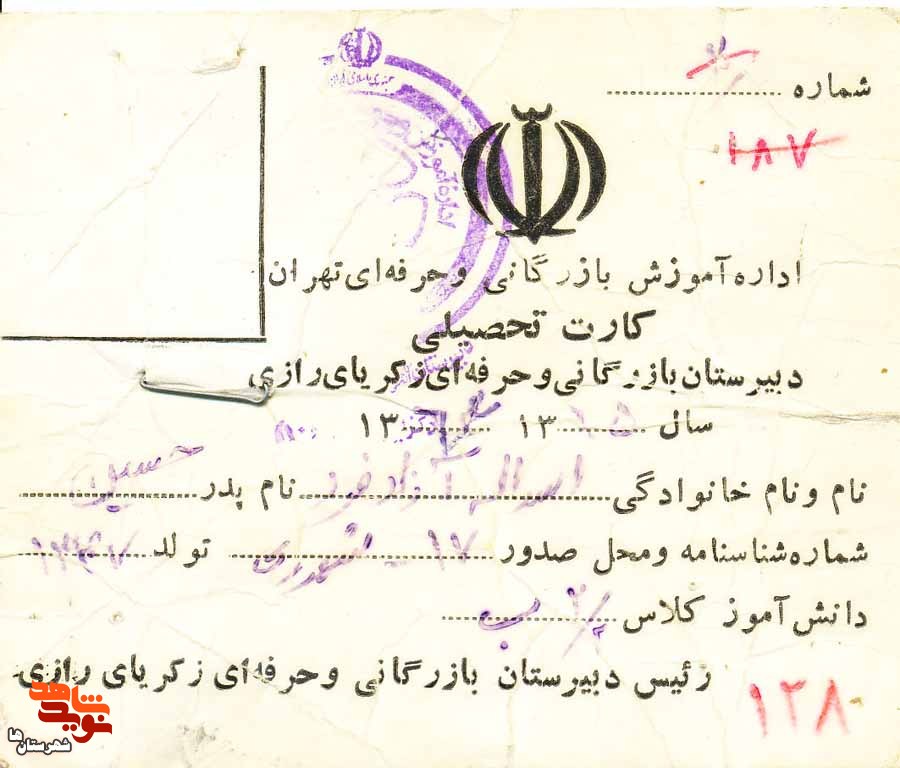 شماره
۱۸۷
اداره آموزش بازرگانی وحرفه‌ای تهران
کارت تحصیلی
دبیرستان بازرگانی وحرفه‌ای زکریای رازی
سال ۱۳ ۱۳
نام ونام خانوادگی نام پدر حسین
شماره شناسنامه ومحل صدور ۱۷ تولد ۱۳۴۷
دانش آموز کلاس ب
رئیس دبیرستان بازرگانی وحرفه‌ای زکریای رازی
۱۳۸
نوید شاهد
شهرستان‌ها